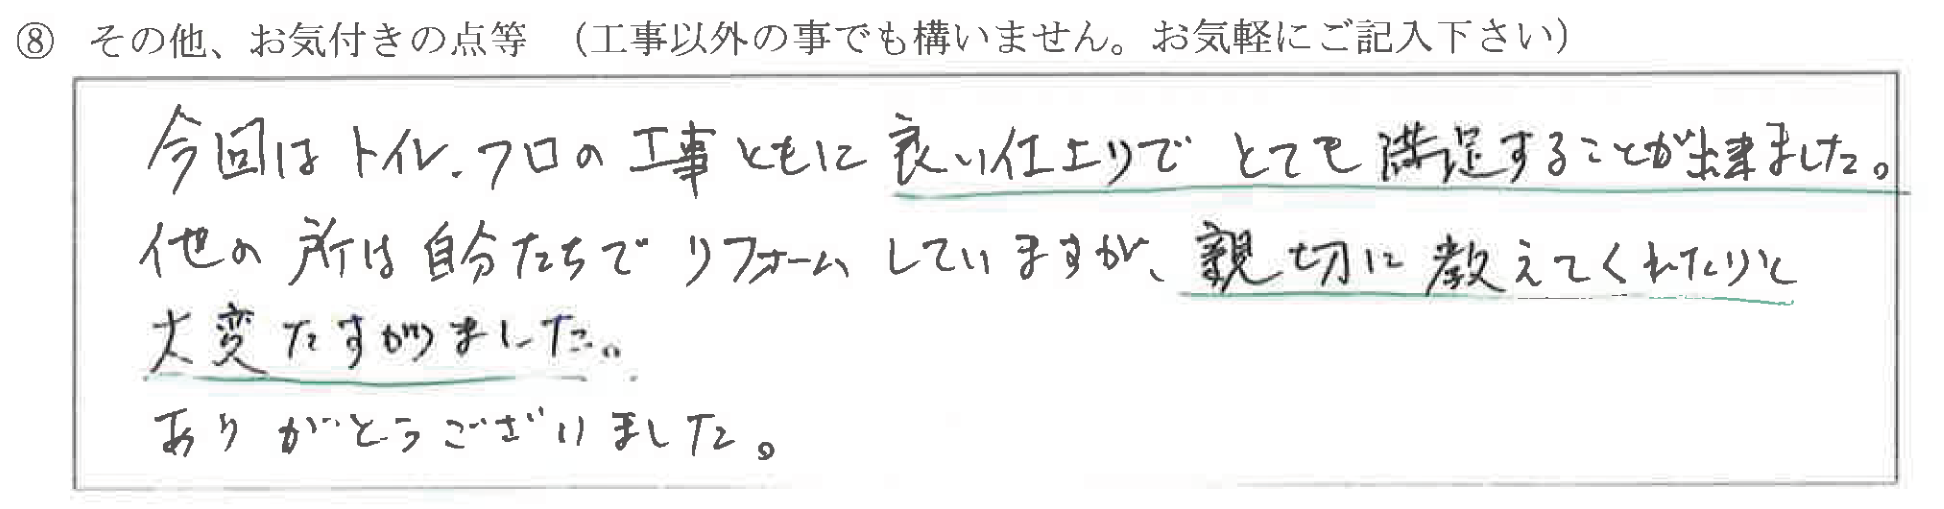 ⑧ その他、お気付きの点等 （工事以外の事でも構いません。お気軽にご記入下さい）
今回はトイレ.フロの工事ともに良い仕上りでとても満足することが出来ました。
他の所は自分たちでリフォームしていますが、親切に教えてくれたりと
大変たすかりました。
ありがとうございました。